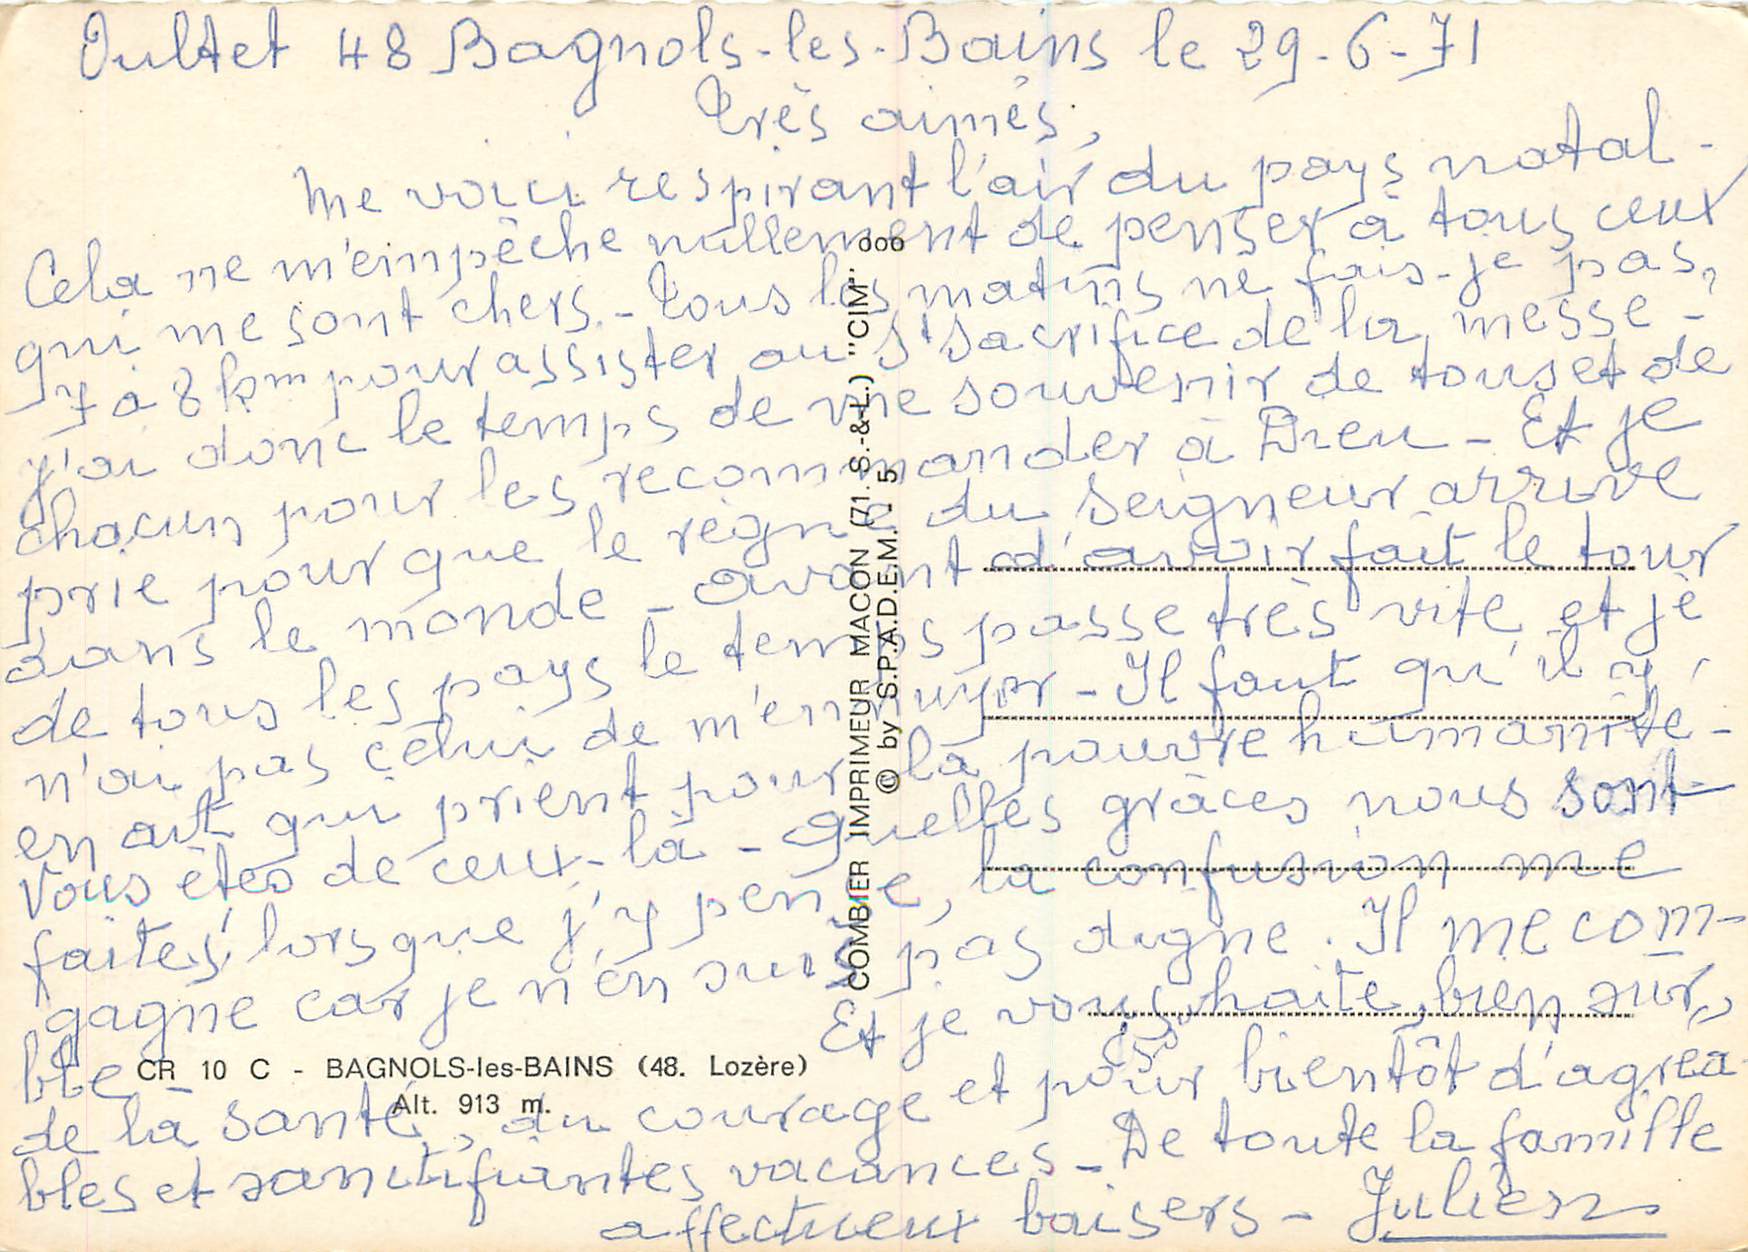 Oultet 48 Bagnols-les-Bains le 29-6-71
Très aimés,
Me voici respirant l'air du pays natal -
Cela ne m'empêche nullement de penser à tous ceux
qui me sont chers - Tous les matins ne fais-je pas,
7 à 8 km pour assister au St Sacrifice de la messe -
j'ai donc le temps de me souvenir de tous et de
chacun pour les recommander à Dieu - Et je
prie pour que le règne du Seigneur arrive
dans le monde - avant d'avoir fait le tour
de tous les pays le temps passe très vite et je
n'ai pas celui de m'ennuyer - Il faut qu'il y
en ait qui prient pour la pauvre humanité -
Vous êtes de ceux-là - Quelles grâces nous sont
faites, lorsque j'y pense, la confusion me
gagne car je n'en suis pas digne. Il me com-
ble - Et je vous souhaite, bien sûr,
de la santé, du courage et pour bientôt d'agréa-
bles et sanctifiantes vacances - De toute la famille
affectueux baisers - Julien
COMBIER IMPRIMEUR MACON (71. S.-&-L.) "CIM"
© by S.P.A.D.E.M. 5
CR 10 C - BAGNOLS-les-BAINS (48. Lozère)
Alt. 913 m.